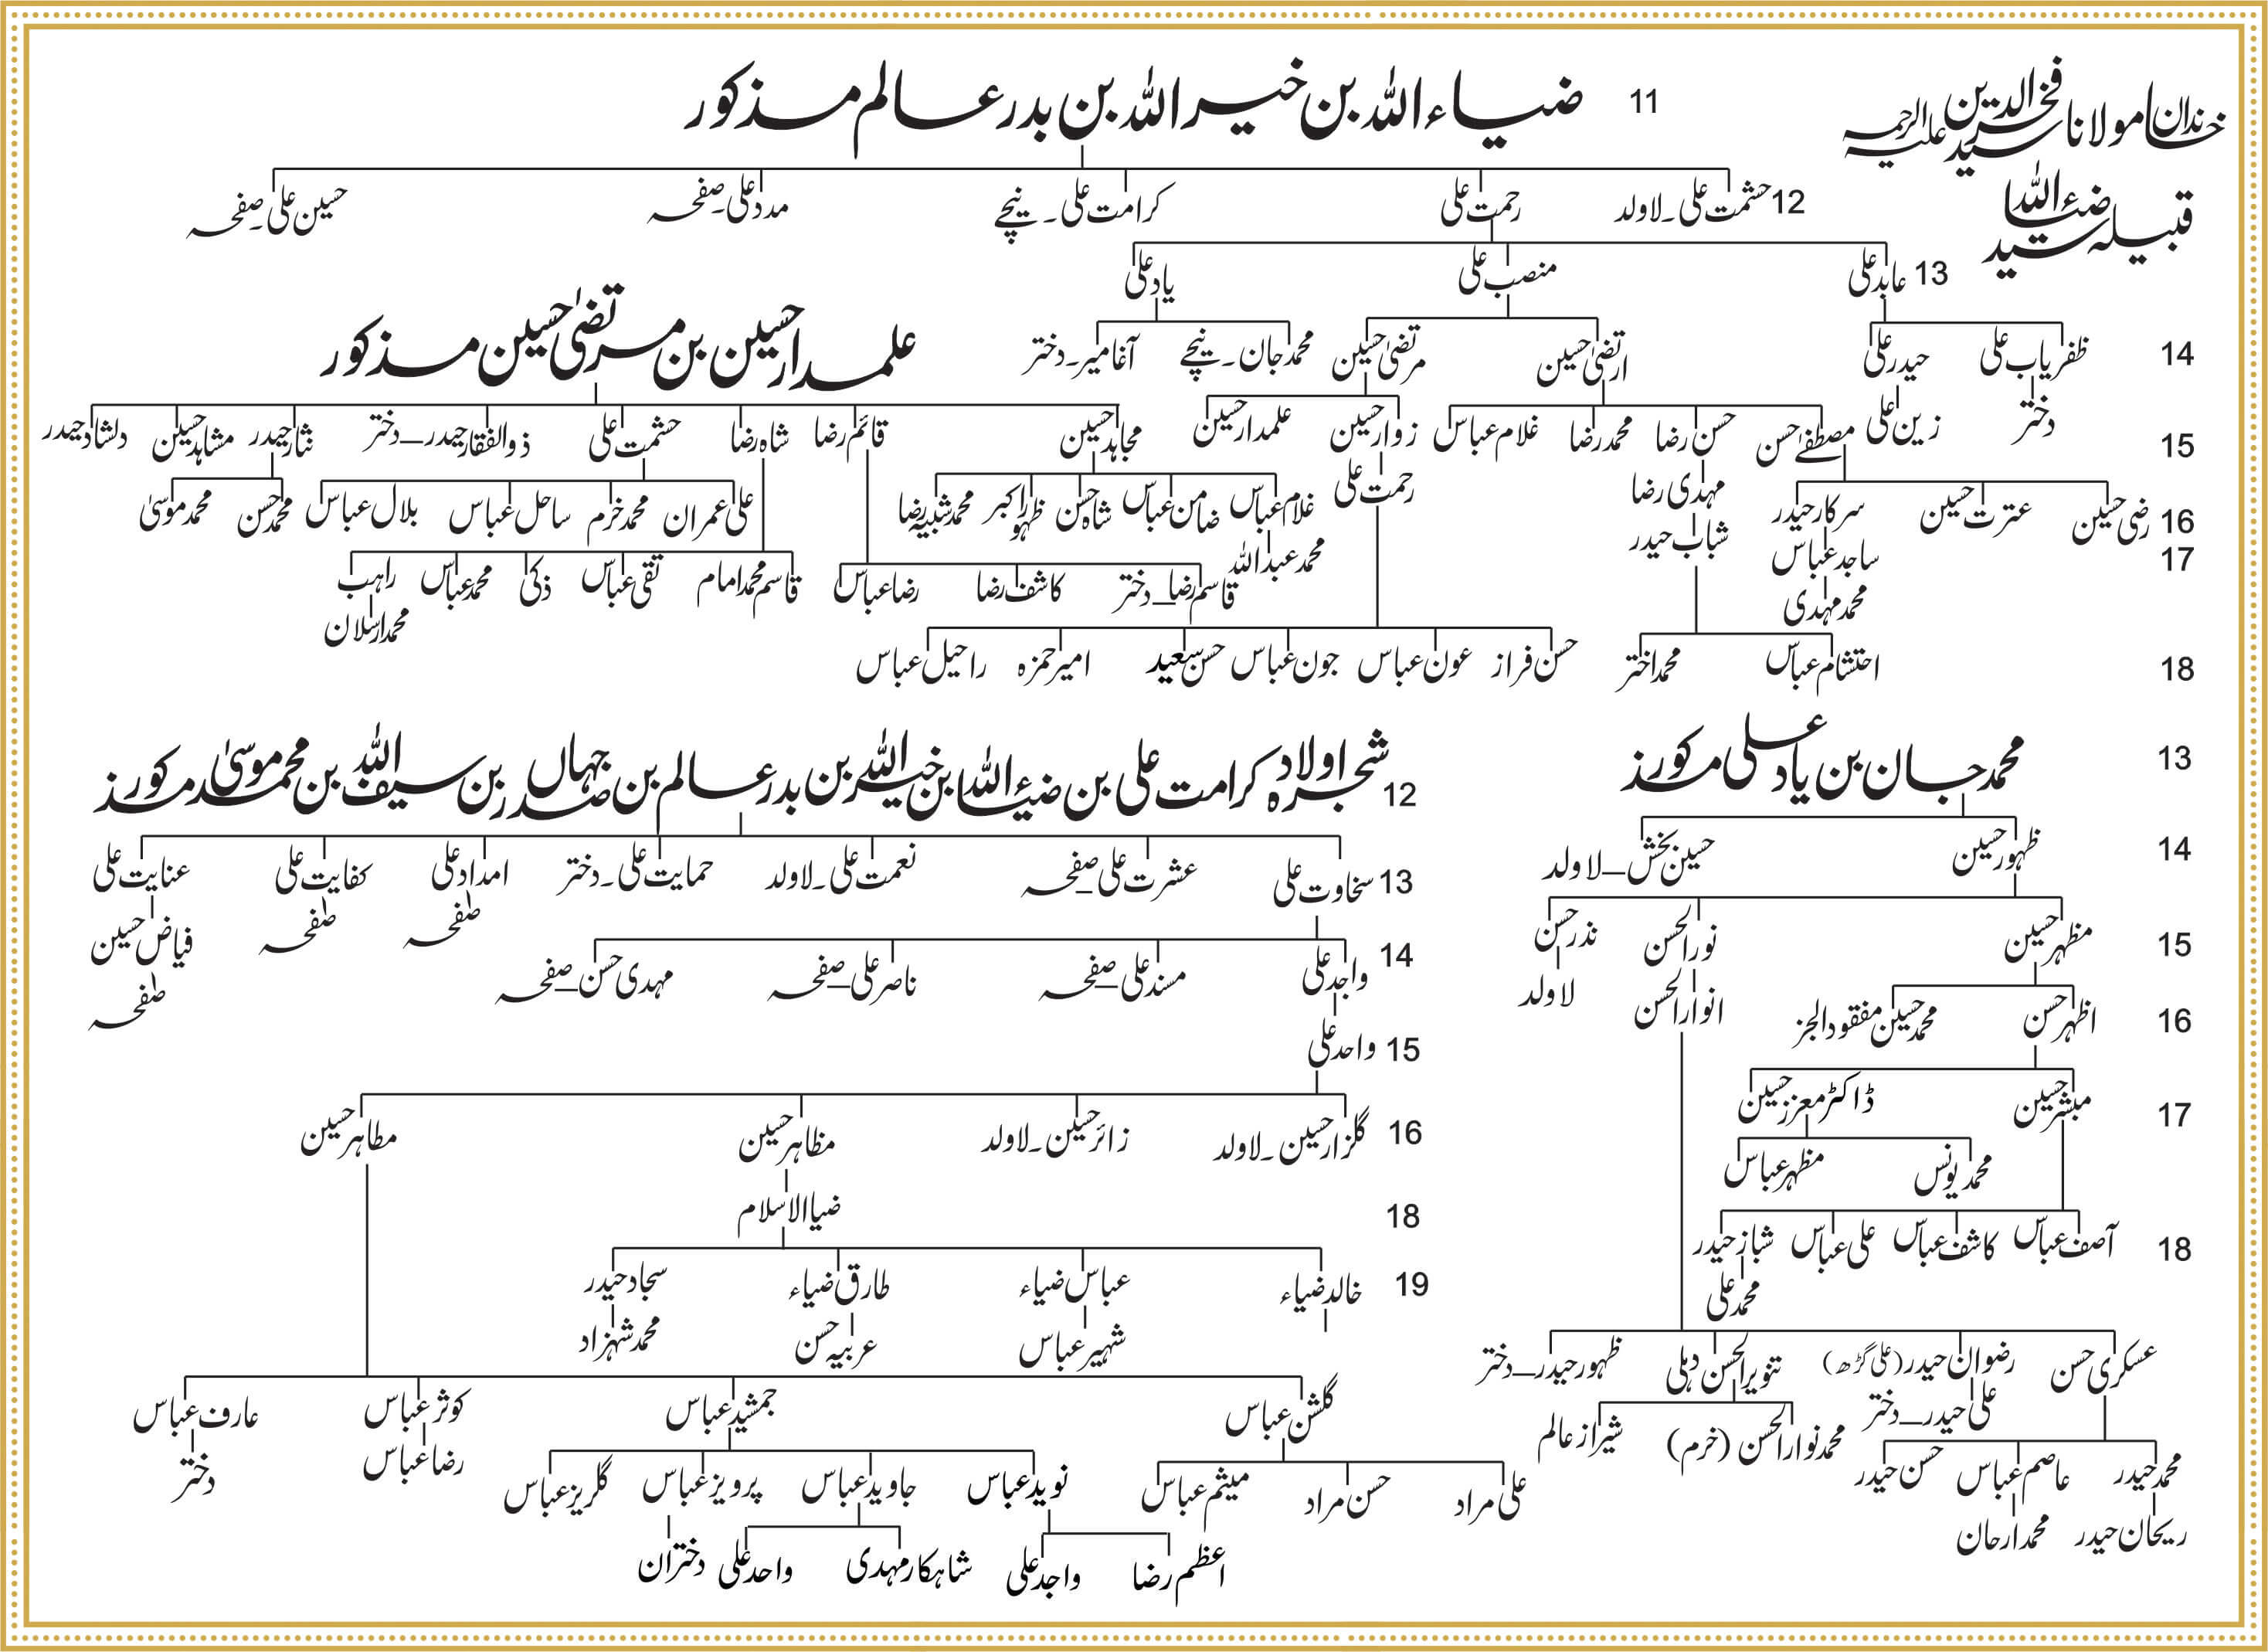 خاندان مولانا سید فخر الدین علیہ الرحمہ
قبیلہ سید ضیاء اللہ
11 ضیاء اللہ بن خیر اللہ بن بدر عالم مذکور
12 حشمت علی۔لاولد رحمت علی کرامت علی۔نیچے مدد علی۔صفحہ حسین علی۔صفحہ
13 عابد علی منصب علی یاد علی
14 ظفریاب علی حیدر علی ارتضیٰ حسین مرتضیٰ حسین محمد جان۔نیچے آغا میر۔دختر
علمدار حسین بن مرتضیٰ حسین مذکور
15 دختر زین علی مصطفےٰ حسن حسن رضا محمد رضا غلام عباس زوار حسین علمدار حسین مجاہد حسین قائم رضا شاہ رضا حشمت علی ذوالفقار حیدر_دختر نثار حیدر مشاہد حسین دلشاد حیدر
16 رضی حسین عترت حسین سرکار حیدر مہدی رضا رحمت علی غلام عباس ضامن عباس شاہ حسن ظہور اکبر محمد شبیہ رضا علی عمران محمد خرم ساحل عباس بلال عباس محمد حسن محمد موسیٰ
17 ساجد عباس شباب حیدر محمد عبداللہ قاسم رضا_دختر کاشف رضا رضا عباس قاسم محمد امام تقی عباس ذکی محمد عباس راہب
محمد مہدی محمد ارسلان
18 احتشام عباس محمد اختر حسن فراز عون عباس جون عباس حسن سعید امیر حمزہ راحیل عباس
13 محمد جان بن یاد علی مذکور
14 ظہور حسین حسین بخش_لاولد
15 مظہر حسین نور الحسن نذر حسن
16 اظہر حسن محمد حسین مفقود الجز انوار الحسن لاولد
17 مبشر حسین ڈاکٹر معزز حسین
محمد یونس مظہر عباس
18 آصف عباس کاشف عباس علی عباس شباز حیدر
محمد علی
عسکری حسن رضوان حیدر (علی گڑھ) تنویر الحسن دہلی ظہور حیدر_دختر
علی حیدر_دختر محمد نوار الحسن (خرم) شیراز عالم
محمد حیدر عاصم عباس حسن حیدر
ریحان حیدر محمد ارحان
12 شجرہ اولاد کرامت علی بن ضیاء اللہ بن خیر اللہ بن بدر عالم بن صدر جہاں بن سیف اللہ بن محمد موسیٰ مذکور
13 سخاوت علی عشرت علی_صفحہ نعمت علی۔لاولد حمایت علی۔دختر امداد علی کفایت علی عنایت علی
صفحہ صفحہ فیاض حسین
صفحہ
14 واجد علی مسند علی_صفحہ ناصر علی_صفحہ مہدی حسن_صفحہ
15 واحد علی
16 گلزار حسین۔لاولد زائر حسین۔لاولد مظاہر حسین مطاہر حسین
18 ضیاالاسلام
19 خالد ضیاء عباس ضیاء طارق ضیاء سجاد حیدر
شہیر عباس عربیہ حسن محمد شہزاد
گلشن عباس جمشید عباس کوثر عباس عارف عباس
رضا عباس دختر
علی مراد حسن مراد میثم عباس نوید عباس جاوید عباس پرویز عباس گلریز عباس
اعظم رضا واجد علی شاہکار مہدی واحد علی دختران